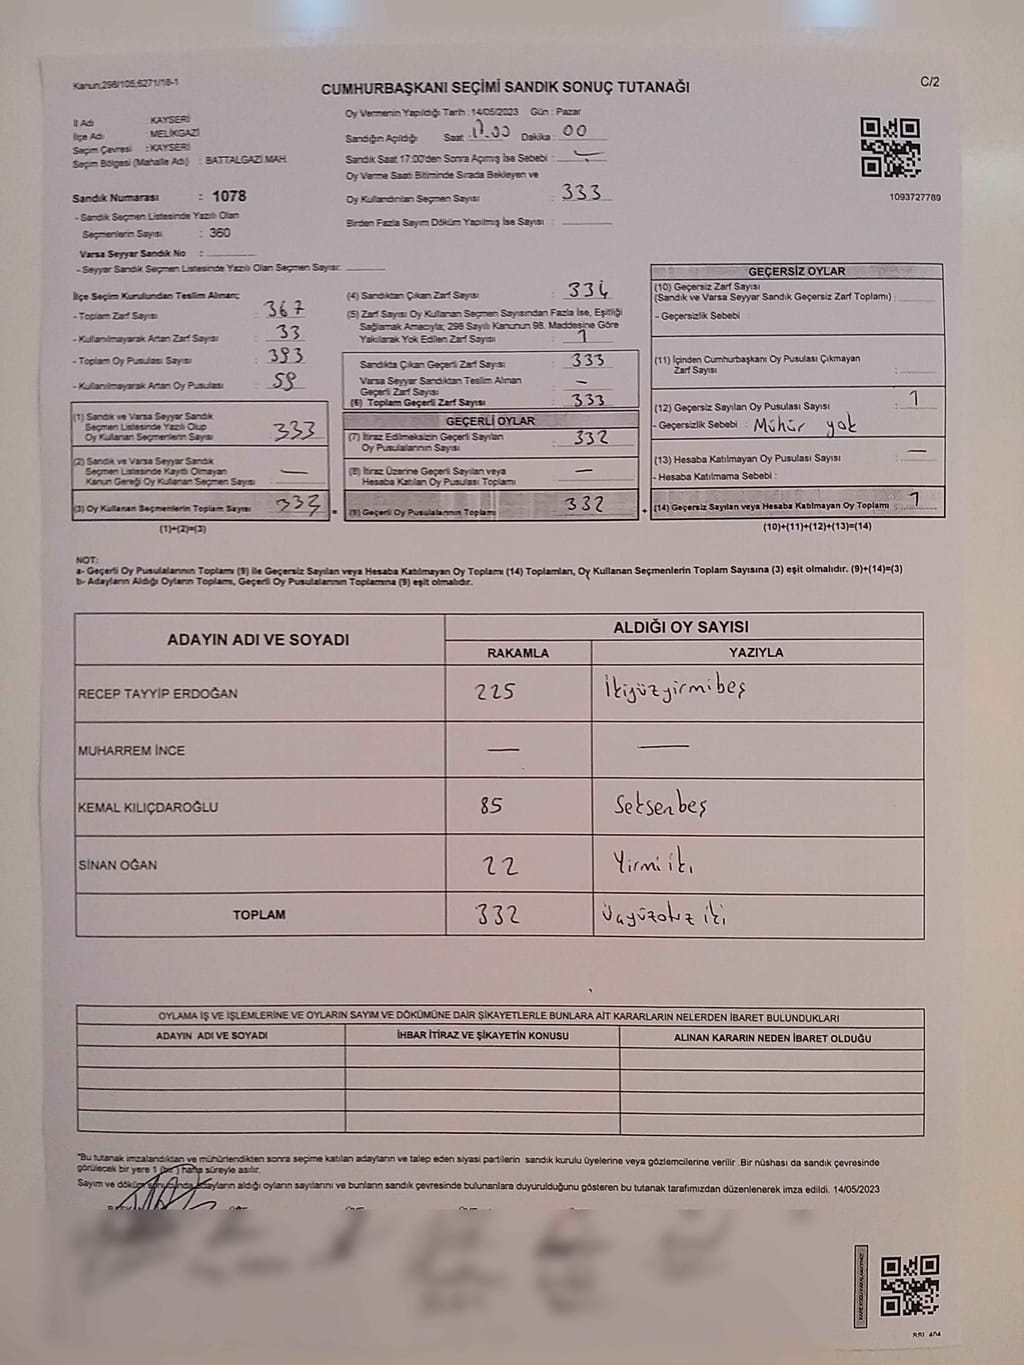 Kanun;298/105,6271/18-1
CUMHURBAŞKANI SEÇİMİ SANDIK SONUÇ TUTANAĞI
C/2
İl Adı : KAYSERİ
İlçe Adı : MELİKGAZİ
Seçim Çevresi : KAYSERİ
Seçim Bölgesi (Mahalle Adı) : BATTALGAZİ MAH.
Sandık Numarası : 1078
- Sandık Seçmen Listesinde Yazılı Olan
Seçmenlerin Sayısı : 360
Varsa Seyyar Sandık No :
- Seyyar Sandık Seçmen Listesinde Yazılı Olan Seçmen Sayısı:
Oy Vermenin Yapıldığı Tarih : 14/05/2023 Gün : Pazar
Sandığın Açıldığı Saat : 17.00 Dakika : 00
Sandık Saat 17:00'den Sonra Açımış İse Sebebi :
Oy Verme Saati Bitiminde Sırada Bekleyen ve
Oy Kullandırılan Seçmen Sayısı : 333
Birden Fazla Sayım Döküm Yapılmış İse Sayısı :
1093727789
İlçe Seçim Kurulundan Teslim Alınan;
- Toplam Zarf Sayısı : 367
- Kullanılmayarak Artan Zarf Sayısı : 33
- Toplam Oy Pusulası Sayısı : 393
- Kullanılmayarak Artan Oy Pusulası : 59
(1) Sandık ve Varsa Seyyar Sandık
Seçmen Listesinde Yazılı Olup
Oy Kullanan Seçmenlerin Sayısı : 333
(2) Sandık ve Varsa Seyyar Sandık
Seçmen Listesinde Kayıtlı Olmayan
Kanun Gereği Oy Kullanan Seçmen Sayısı : —
(3) Oy Kullanan Seçmenlerin Toplam Sayısı : 333
(1)+(2)=(3)
(4) Sandıktan Çıkan Zarf Sayısı : 334
(5) Zarf Sayısı Oy Kullanan Seçmen Sayısından Fazla İse, Eşitliği
Sağlamak Amacıyla; 298 Sayılı Kanunun 98. Maddesine Göre
Yakılarak Yok Edilen Zarf Sayısı : 1
Sandıkta Çıkan Geçerli Zarf Sayısı : 333
Varsa Seyyar Sandıktan Teslim Alınan
Geçerli Zarf Sayısı : —
(6) Toplam Geçerli Zarf Sayısı : 333
GEÇERLİ OYLAR
(7) İtiraz Edilmeksizin Geçerli Sayılan
Oy Pusulalarının Toplamı : 332
(8) İtiraz Üzerine Geçerli Sayılan veya
Hesaba Katılan Oy Pusulası Toplamı : —
(9) Geçerli Oy Pusulalarının Toplamı : 332
GEÇERSİZ OYLAR
(10) Geçersiz Zarf Sayısı
(Sandık ve Varsa Seyyar Sandık Geçersiz Zarf Toplamı) :
- Geçersizlik Sebebi :
(11) İçinden Cumhurbaşkanı Oy Pusulası Çıkmayan
Zarf Sayısı :
(12) Geçersiz Sayılan Oy Pusulası Sayısı : 1
- Geçersizlik Sebebi : Mühür yok
(13) Hesaba Katılmayan Oy Pusulası Sayısı : —
- Hesaba Katılmama Sebebi :
(14) Geçersiz Sayılan veya Hesaba Katılmayan Oy Toplamı : 1
(10)+(11)+(12)+(13)=(14)
NOT:
a- Geçerli Oy Pusulalarının Toplamı (9) ile Geçersiz Sayılan veya Hesaba Katılmayan Oy Toplamı (14) Toplamları, Oy Kullanan Seçmenlerin Toplam Sayısına (3) eşit olmalıdır. (9)+(14)=(3)
b- Adayların Aldığı Oyların Toplamı, Geçerli Oy Pusulalarının Toplamına (9) eşit olmalıdır.
ADAYIN ADI VE SOYADI
ALDIĞI OY SAYISI
RAKAMLA YAZIYLA
RECEP TAYYİP ERDOĞAN 225 İkiyüzyirmibeş
MUHARREM İNCE — —
KEMAL KILIÇDAROĞLU 85 Seksenbeş
SİNAN OĞAN 22 Yirmi iki
TOPLAM 332 Üçyüzotuz iki
OYLAMA İŞ VE İŞLEMLERİNE VE OYLARIN SAYIM VE DÖKÜMÜNE DAİR ŞİKAYETLERLE BUNLARA AİT KARARLARIN NELERDEN İBARET BULUNDUKLARI
ADAYIN ADI VE SOYADI İHBAR İTİRAZ VE ŞİKAYETİN KONUSU ALINAN KARARIN NEDEN İBARET OLDUĞU
"Bu tutanak imzalandıktan ve mühürlendikten sonra seçime katılan adayların ve talep eden siyasi partilerin sandık kurulu üyelerine veya gözlemcilerine verilir. Bir nüshası da sandık çevresinde
görülecek bir yere 1 (bir) hafta süreyle asılır.
Sayım ve döküm sonucunda adayların aldığı oyların sayılarını ve bunların sandık çevresinde bulunanlara duyurulduğunu gösteren bu tutanak tarafımızdan düzenlenerek imza edildi. 14/05/2023